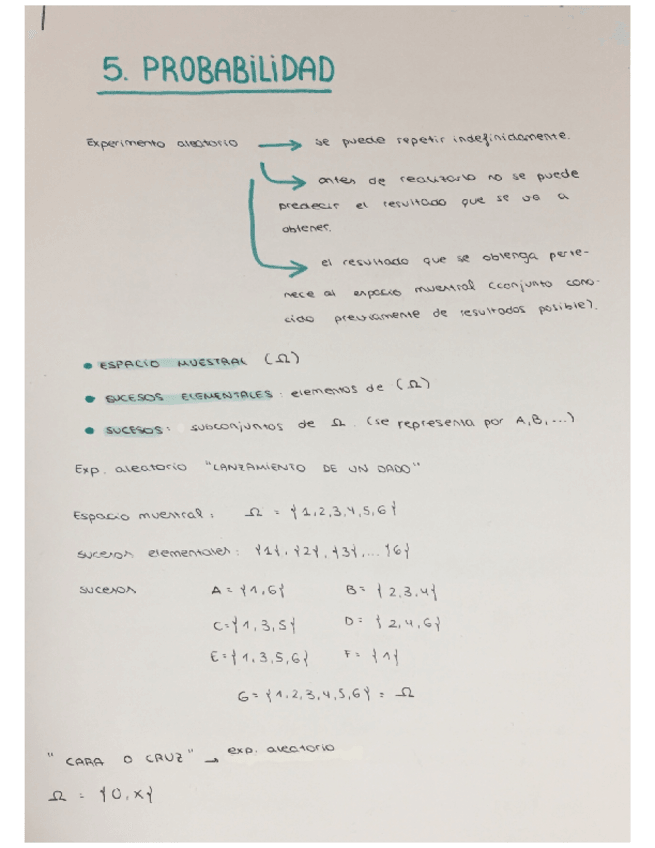 5. PROBABILIDAD
Experimento aleatorio → se puede repetir indefinidamente.
→ antes de realizarlo no se puede
predecir el resultado que se va a
obtener.
→ el resultado que se obtenga perte-
nece al espacio muestral (conjunto cono-
cido previamente de resultados posible).
• ESPACIO MUESTRAL (Ω)
• SUCESOS ELEMENTALES: elementos de (Ω)
• SUCESOS: subconjuntos de Ω. (se representa por A,B,...)
Exp. aleatorio "LANZAMIENTO DE UN DADO"
Espacio muestral: Ω = {1,2,3,4,5,6}
sucesos elementales: {1}, {2}, {3},... {6}
sucesos A = {1,6} B = {2,3,4}
C = {1,3,5} D = {2,4,6}
E = {1,3,5,6} F = {1}
G = {1,2,3,4,5,6} = Ω
"CARA O CRUZ" → exp. aleatorio
Ω = {O,X}